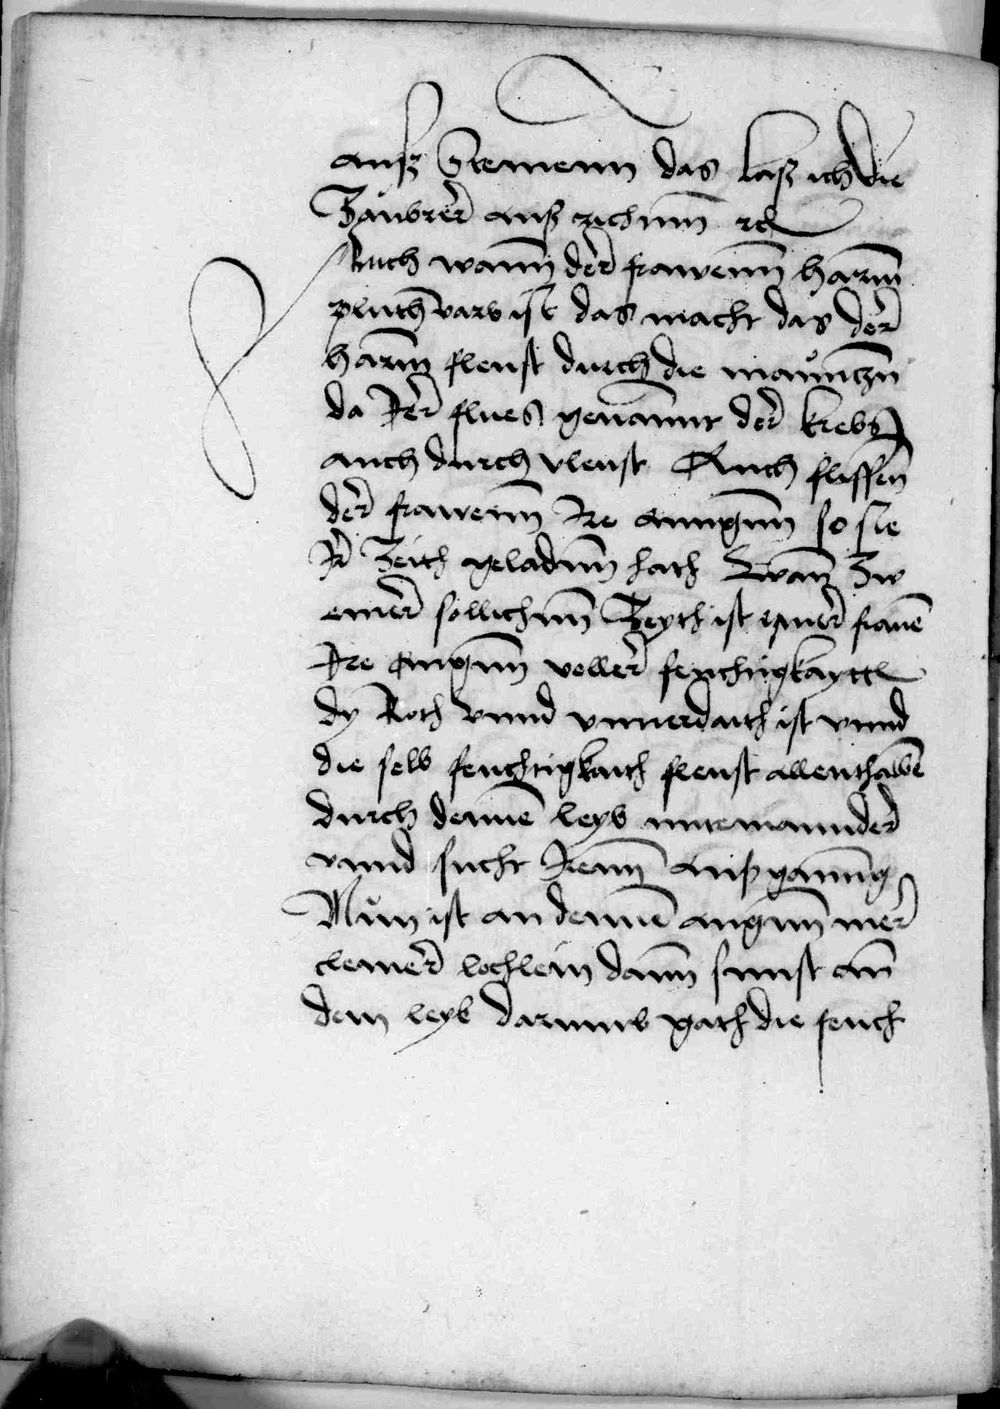 auß Nemenn das laß ich die
Zaubrer auß richnn rc
Auch wann der frawenn harnn
pluth varb ist das macht das der
harnn fleust durch die maüttzn
da Irer flues genannt der krebs
auch durch vleust Auch flissen
der frawenn Ire aungnn so sie
Ir Zeith geladnn hath Wann Zw
einer sollichnn Zeyth ist eyner frauen
Ire augnn voller feuchtigkaytt
dy Roth vnnd vnnerdaith ist vnnd
die selb feuchtigkaith fleust allenthalben
durch dennen leyb miteinannder
vnnd sucht Irenn außganng
Nün ist an dennen augnn mer
clener lochlein dann sunst an
dem leyb darumb gath die feuch